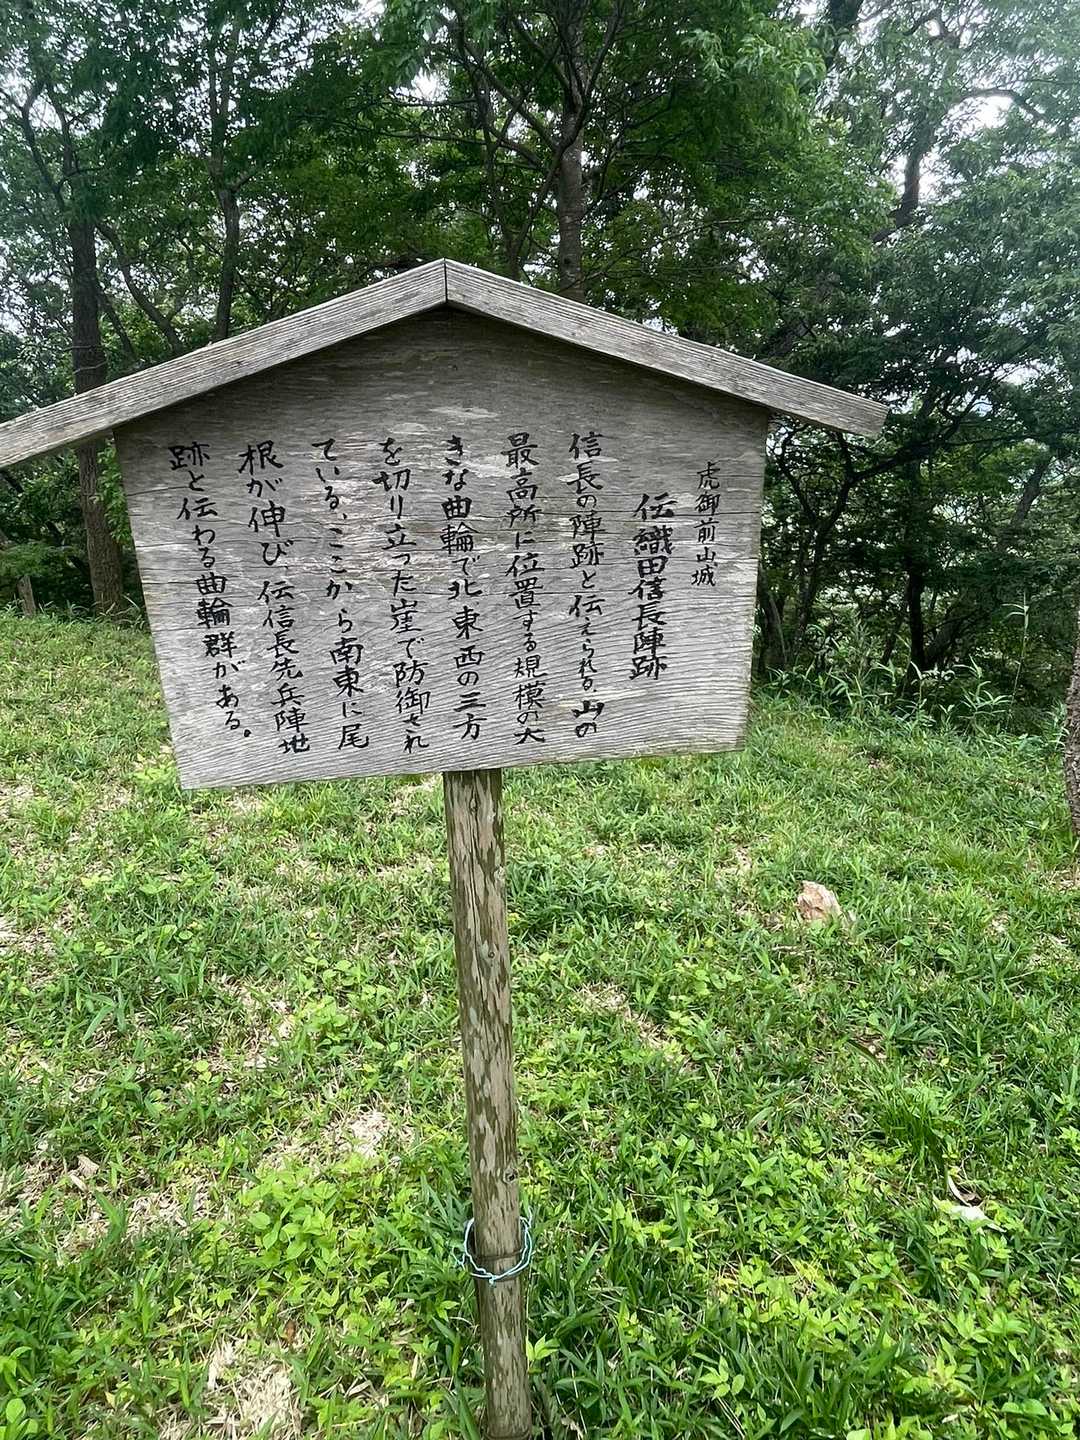 虎御前山城
伝織田信長陣跡
信長の陣跡と伝えられる、山の
最高所に位置する規模の大
きな曲輪で北東西の三方
を切り立った崖で防御され
ている、ここから南東に尾
根が伸び、伝信長先兵陣地
跡と伝わる曲輪群がある。